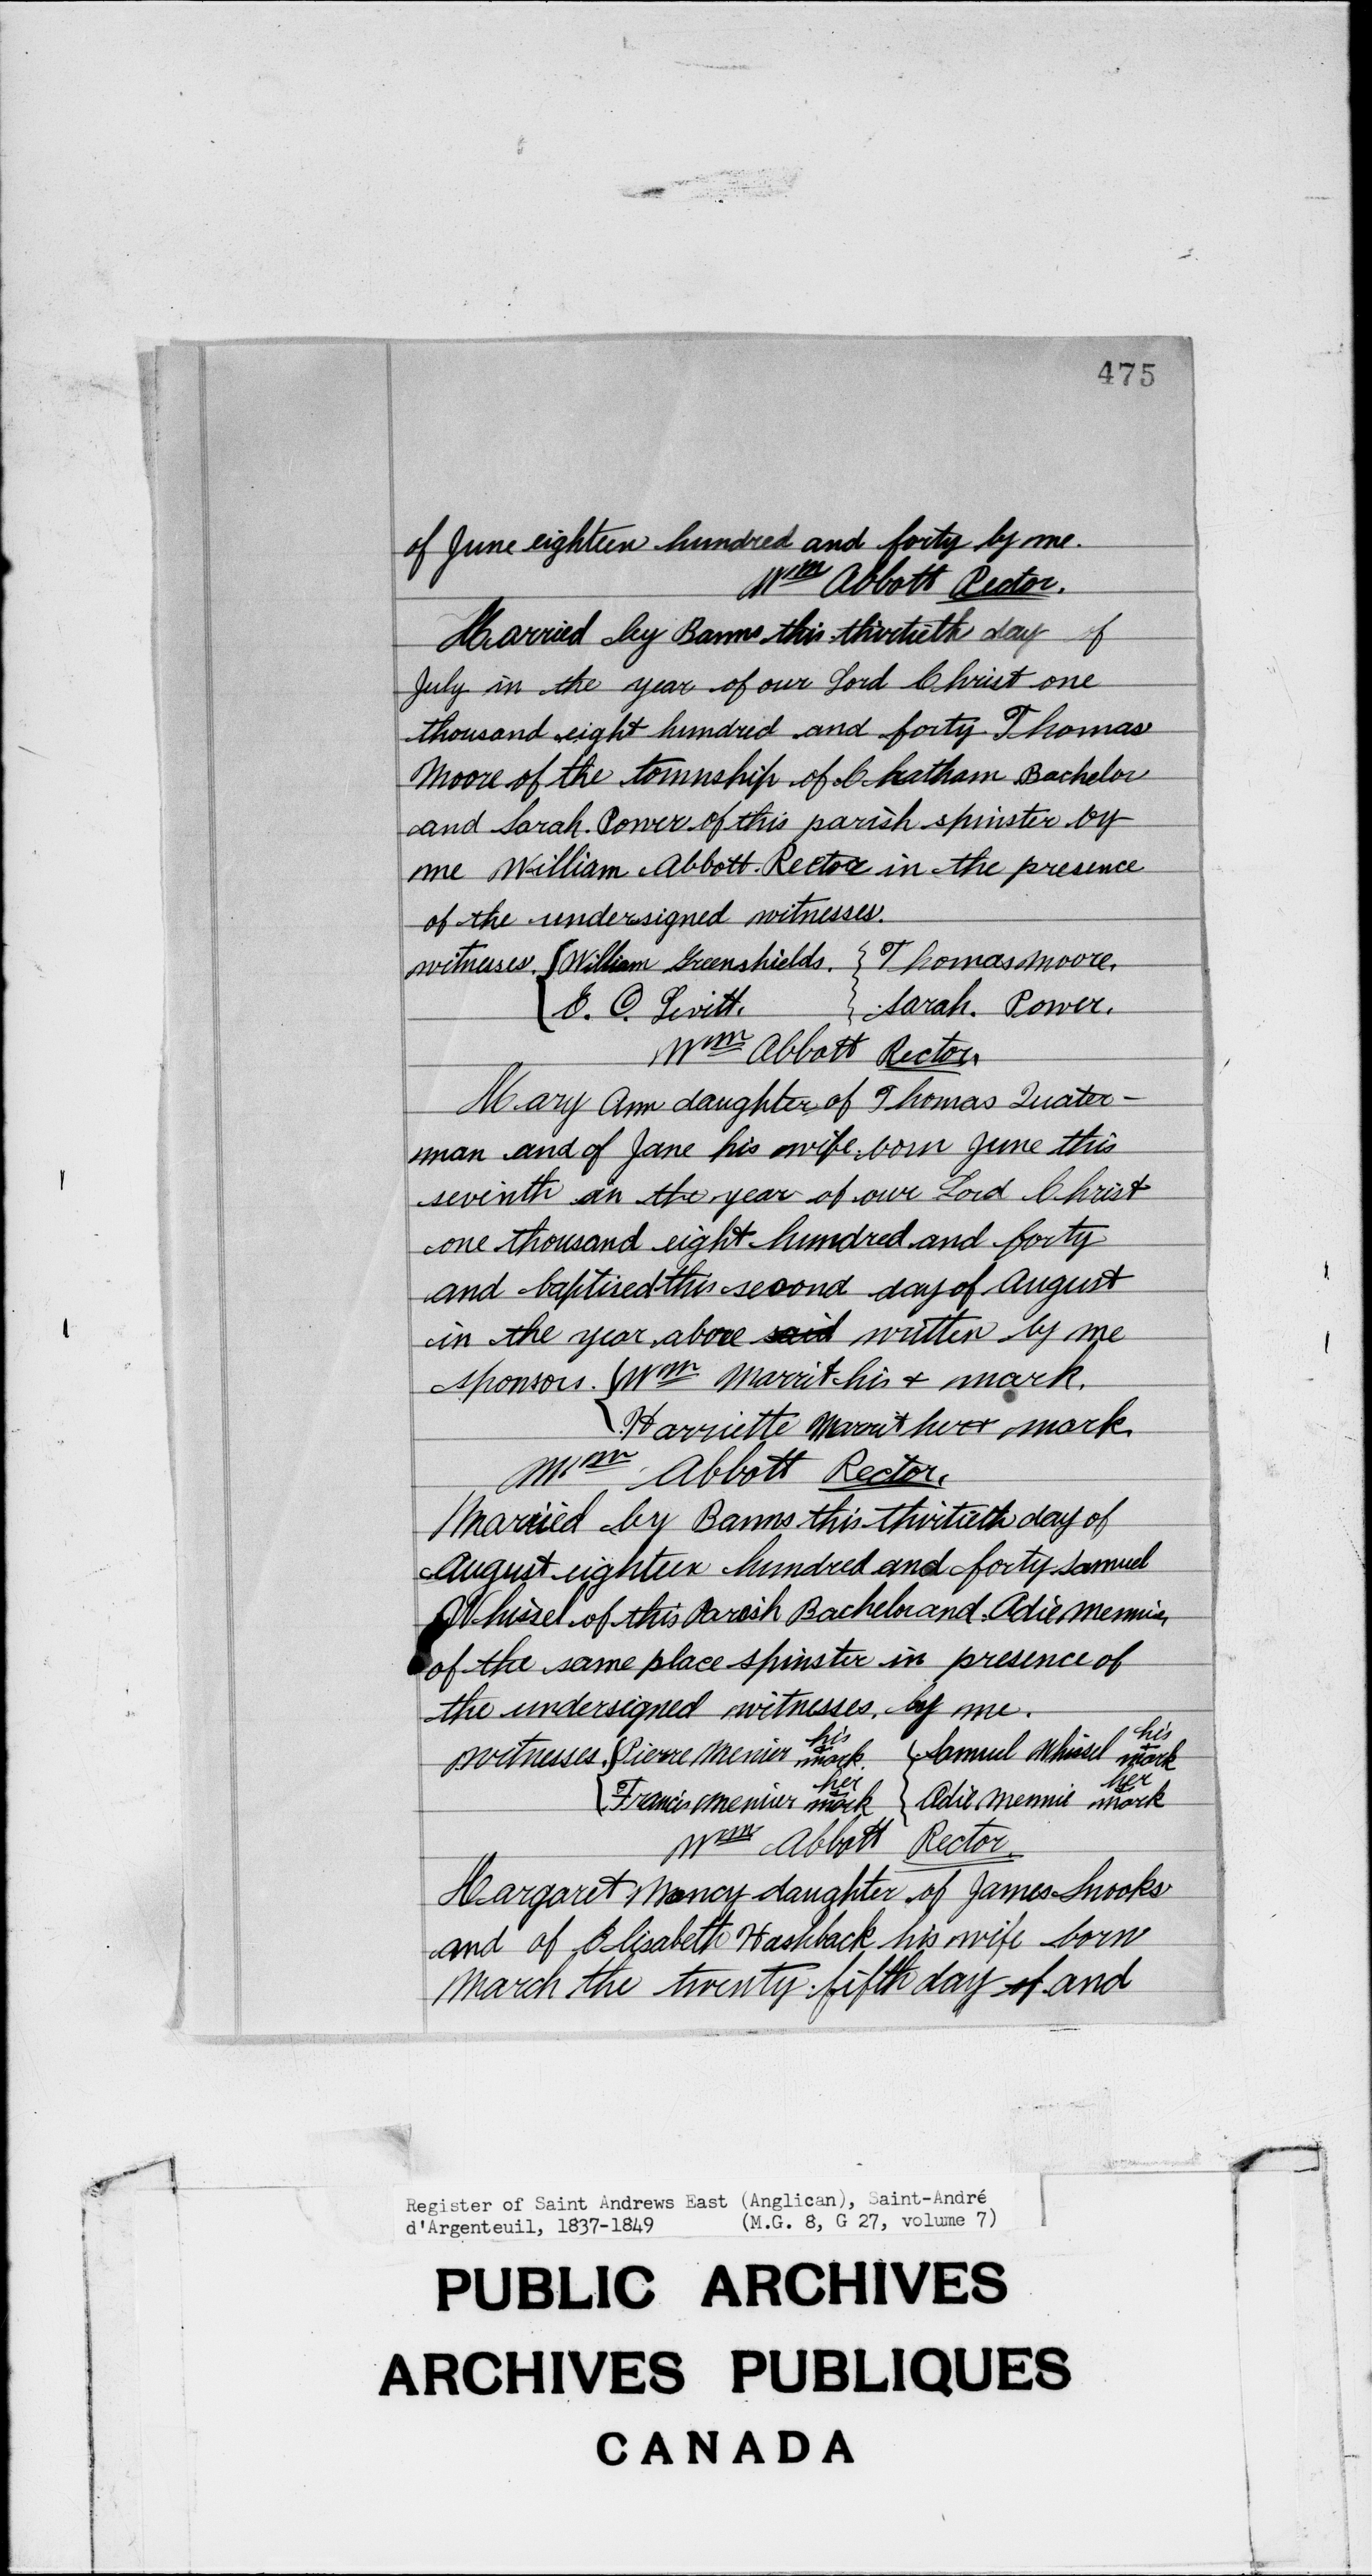 475
of June eighteen hundred and forty by me.
Wm Abbott Rector.
Married by Banns this thirtieth day of
July in the year of our Lord Christ one
thousand eight hundred and forty Thomas
Moore of the township of Chatham Bachelor
and Sarah. Power of this parish spinster by
me William Abbott. Rector in the presence
of the undersigned witnesses.
witnesses. { William Greenshields. } Thomas Moore.
{ E. C. Levitt. } Sarah. Power.
Wm Abbott Rector.
Mary Ann daughter of Thomas Quater-
man and of Jane his wife born June this
seventh in the year of our Lord Christ
one thousand eight hundred and forty
and baptised this second day of August
in the year above said written by me
sponsors. { Wm Marrit his + mark.
{ Harriette Marrit her + mark.
Wm Abbott Rector.
Married by Banns this thirtieth day of
August eighteen hundred and forty Samuel
Whissel of this Parish Bachelor and Adie Mennie,
of the same place spinster in presence of
the undersigned witnesses, by me.
witnesses. { Pierre Menier his + mark. { Samuel Whissel his + mark
{ Francis Menier her + mark { Adie Mennie her + mark
Wm Abbott Rector.
Margaret Mancy daughter of James Snooks
and of Elisabeth Hashback his wife born
March the twenty-fifth day of and
Register of Saint Andrews East (Anglican), Saint-André
d'Argenteuil, 1837-1849 (M.G. 8, G 27, volume 7)
PUBLIC ARCHIVES
ARCHIVES PUBLIQUES
CANADA